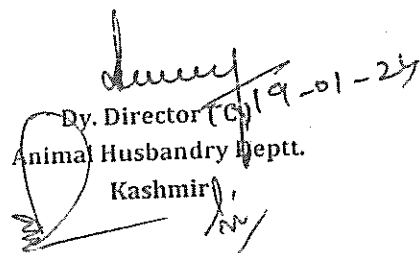 19-01-24
Dy. Director (C)
Animal Husbandry Deptt.
Kashmir